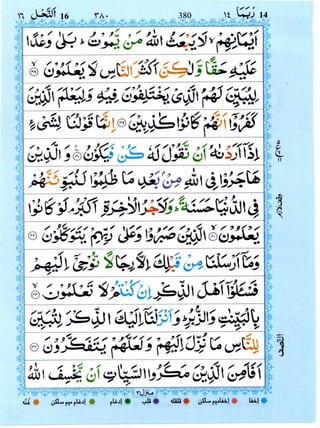 ١٦ اَلنَّحْل 16 ٣٨٠ 380 رُبَمَا ١٤ 14
اَيْمَانِهِمْ ۙ لَا يَبْعَثُ اللّٰهُ مَنْ يَّمُوْتُ ؕ بَلٰى وَعْدًا
عَلَيْهِ حَقًّا وَّلٰكِنَّ اَكْثَرَ النَّاسِ لَا يَعْلَمُوْنَ ۙ﴿۳۸﴾
لِيُبَيِّنَ لَهُمُ الَّذِىْ يَخْتَلِفُوْنَ فِيْهِ وَلِيَعْلَمَ الَّذِيْنَ
كَفَرُوْۤا اَنَّهُمْ كَانُوْا كٰذِبِيْنَ ﴿۳۹﴾ اِنَّمَا قَوْلُنَا لِشَىْءٍ
اِذَاۤ اَرَدْنٰهُ اَنْ نَّقُوْلَ لَهٗ كُنْ فَيَكُوْنُ ﴿۴۰﴾ وَالَّذِيْنَ
هَاجَرُوْا فِى اللّٰهِ مِنْۢ بَعْدِ مَا ظُلِمُوْا لَنُبَوِّئَنَّهُمْ
فِى الدُّنْيَا حَسَنَةً ؕ وَلَاَجْرُ الْاٰخِرَةِ اَكْبَرُ ۘ لَوْ كَانُوْا
يَعْلَمُوْنَ ۙ﴿۴۱﴾ الَّذِيْنَ صَبَرُوْا وَعَلٰى رَبِّهِمْ يَتَوَكَّلُوْنَ ﴿۴۲﴾
وَمَاۤ اَرْسَلْنَا مِنْ قَبْلِكَ اِلَّا رِجَالًا نُّوْحِىْۤ اِلَيْهِمْ
فَسْـَٔلُوْۤا اَهْلَ الذِّكْرِ اِنْ كُنْتُمْ لَا تَعْلَمُوْنَ ۙ﴿۴۳﴾
بِالْبَيِّنٰتِ وَالزُّبُرِ ؕ وَاَنْزَلْنَاۤ اِلَيْكَ الذِّكْرَ لِتُبَيِّنَ
لِلنَّاسِ مَا نُزِّلَ اِلَيْهِمْ وَلَعَلَّهُمْ يَتَفَكَّرُوْنَ ﴿۴۴﴾
اَفَاَمِنَ الَّذِيْنَ مَكَرُوا السَّيِّاٰتِ اَنْ يَّخْسِفَ اللّٰهُ
منزل ۳
اخفا اخفا میم ساکن قلقله قلب ادغام ادغام میم ساکن غنه
وقف لازم
النصف